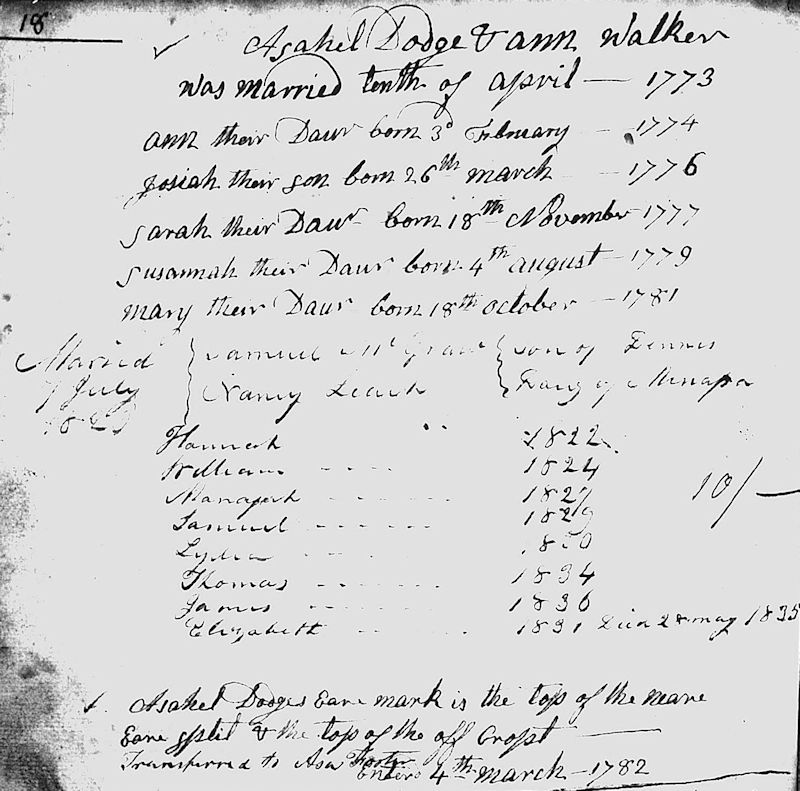 18
Asahel Dodge & ann Walker
was married tenth of april — 1773
ann their Daur born 3d February — 1774
Josiah their son born 26th march — 1776
sarah their Daur born 18th November 1777
susannah their Daur born 4th august — 1779
mary their Daur born 18th october — 1781
Married 7 July
Samuel son of Dennis
Nancy Leach Daug of
Hannah 1822
William 1824
Manaseh 1827
Samuel 1829
Lydia 1830
Thomas 1834
James 1836
Elizabeth 1831 Died 28 may 1835
10/—
Asahel Dodges Eare mark is the top of the neare
Eare split & the top of the off Cropt
Transferred to Asa Foster
Enterd 4th march — 1782